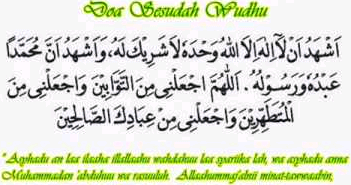 Doa Sesudah Wudhu
اَشْهَدُ اَنْ لَآ اِلٰهَ اِلَّا اللهُ وَحْدَهُ لَا شَرِيْكَ لَهُ، وَاَشْهَدُ اَنَّ مُحَمَّدًا
عَبْدُهُ وَرَسُوْلُهُ. اَللّٰهُمَّ اجْعَلْنِى مِنَ التَّوَّابِيْنَ وَاجْعَلْنِى مِنَ
الْمُتَطَهِّرِيْنَ وَاجْعَلْنِى مِنْ عِبَادِكَ الصَّالِحِيْنَ
"Asyhadu an laa ilaaha illallaahu wahdahuu laa syariika lah, wa asyhadu anna
Muhammadan 'abduhuu wa rasuuluh. Allaahummaj'alnii minat-tawwaabiin,